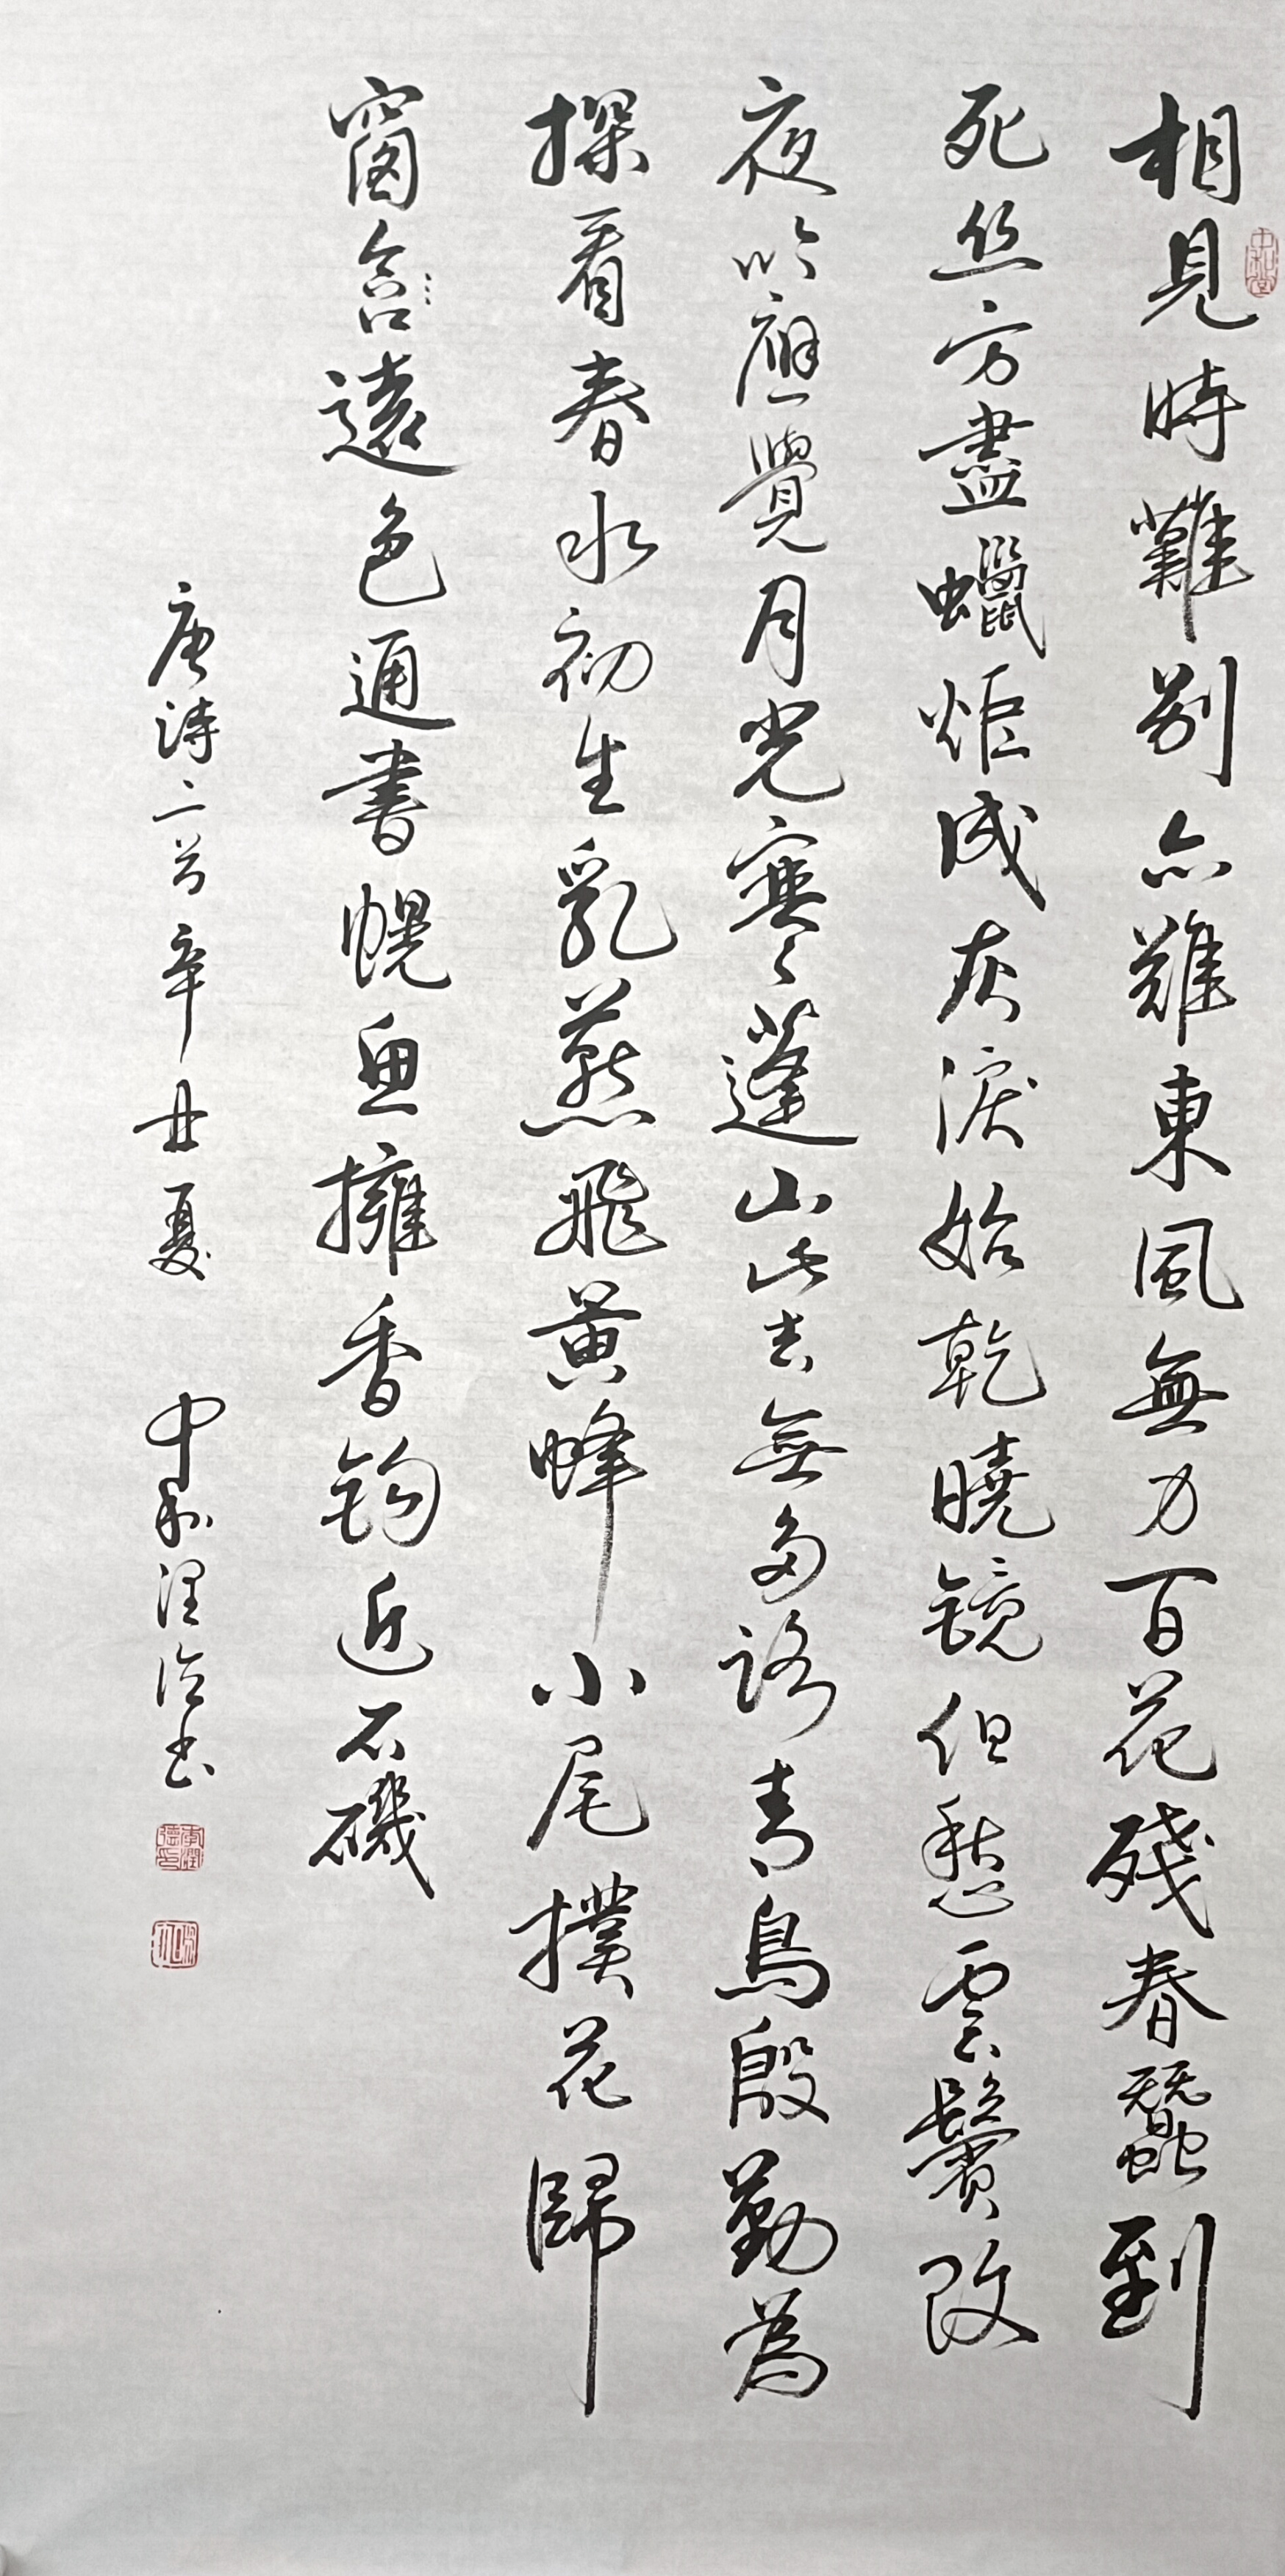 相見時難别亦難東風無力百花殘春蠶到
死丝方盡蠟炬成灰淚始乾曉镜但愁雲鬢改
夜吟應覺月光寒蓬山此去無多路青鳥殷勤為
探看春水初生乳燕飛黄蜂小尾撲花歸
窗含遠色通書幌魚擁香钩近石磯
唐詩二首辛丑夏 中和潤德书
中和堂